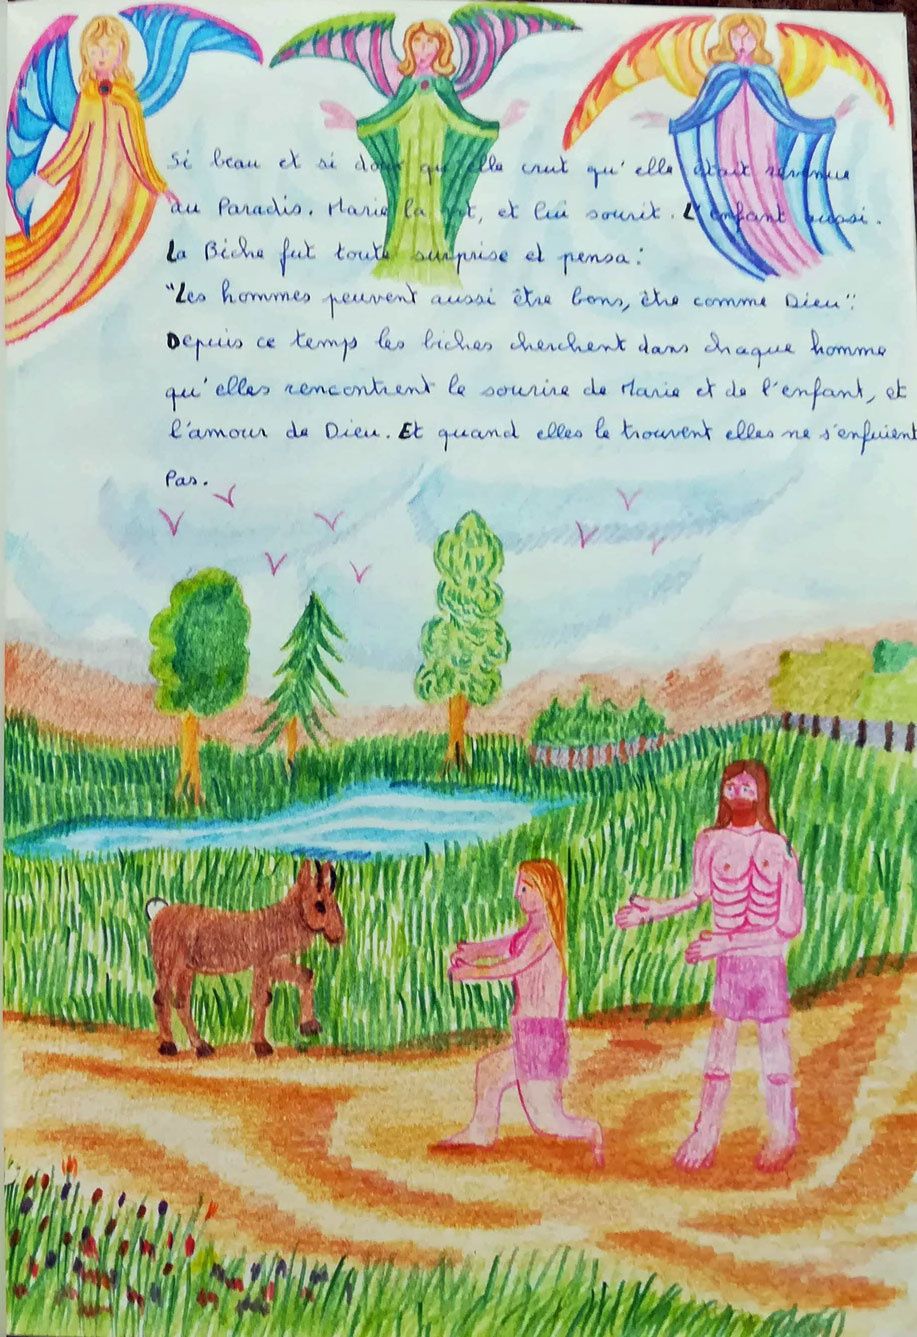 Si beau et si doux qu'elle crut qu'elle était revenue
au Paradis. Marie la vit, et lui sourit. L'enfant aussi.
La Biche fut toute surprise et pensa :
"Les hommes peuvent aussi être bons, être comme Dieu".
Depuis ce temps les biches cherchent dans chaque homme
qu'elles rencontrent le sourire de Marie et de l'enfant, et
l'amour de Dieu. Et quand elles le trouvent elles ne s'enfuient
Pas.